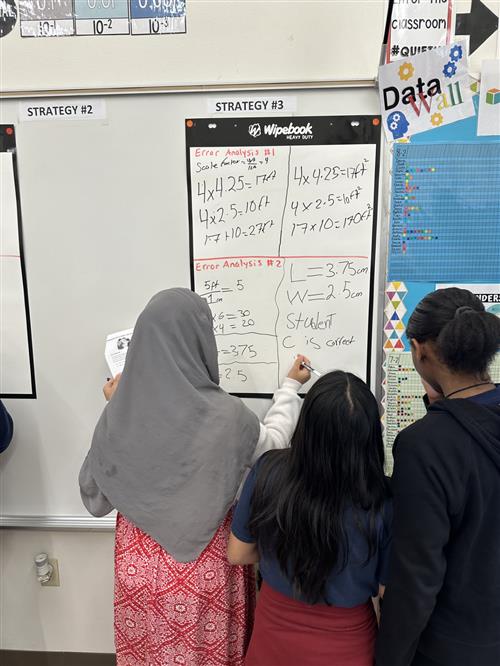 10⁻¹ 10⁻² 10⁻³
classroom
#QUIET
STRATEGY #2
STRATEGY #3
Data
Wall
Wipebook
HEAVY DUTY
Error Analysis #1
Scale factor =
4 x 4.25 = 17 ft
4 x 2.5 = 10 ft
17 + 10 = 27 ft
4 x 4.25 = 17 ft²
4 x 2.5 = 10 ft²
17 x 10 = 170 ft²
Error Analysis #2
5 ft = 5
x 6 = 30
x 4 = 20
= 375
= 2.5
L = 3.75 cm
W = 2.5 cm
Student
C is correct
8-2
7-2